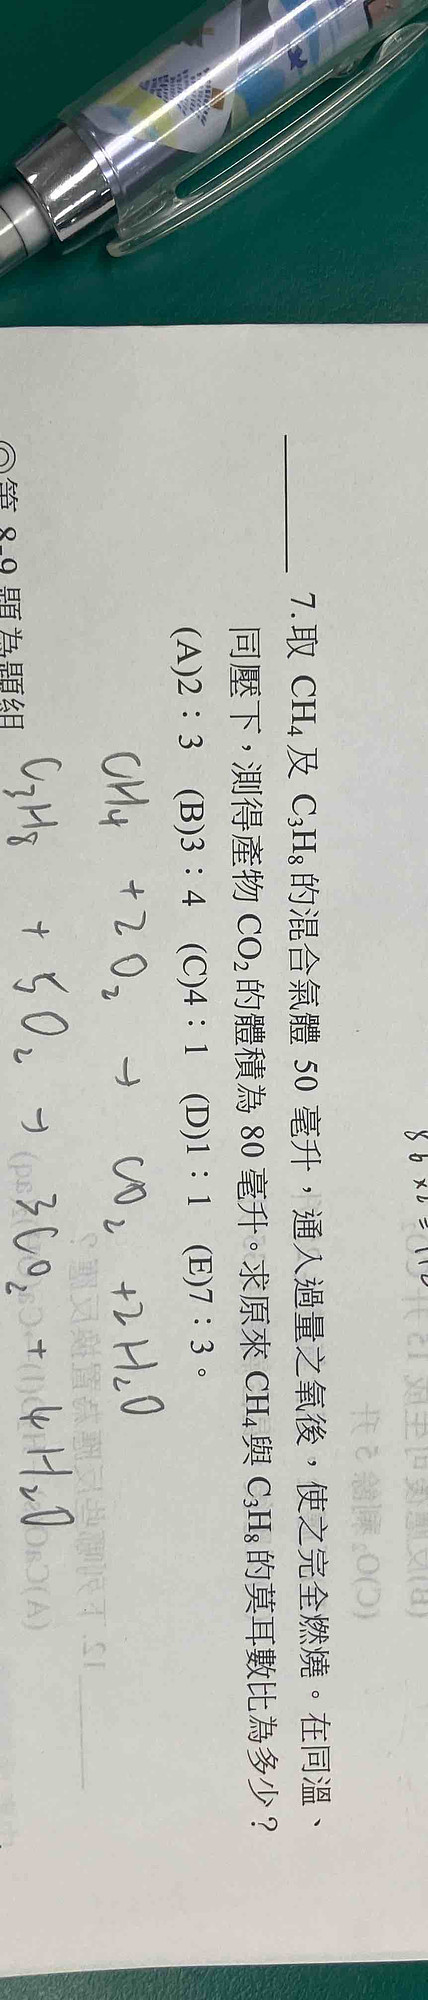 7.取 CH₄ 及 C₃H₈ 的混合氣體 50 毫升，通入過量之氧後，使之完全燃燒。在同溫、
同壓下，測得產物 CO₂ 的體積為 80 毫升。求原來 CH₄ 與 C₃H₈ 的莫耳數比為多少？
(A)2：3 (B)3：4 (C)4：1 (D)1：1 (E)7：3。
CH₄ + 2O₂ → CO₂ + 2H₂O
C₃H₈ + 5O₂ → 3CO₂ + 4H₂O
◎第 8-9 題為題組